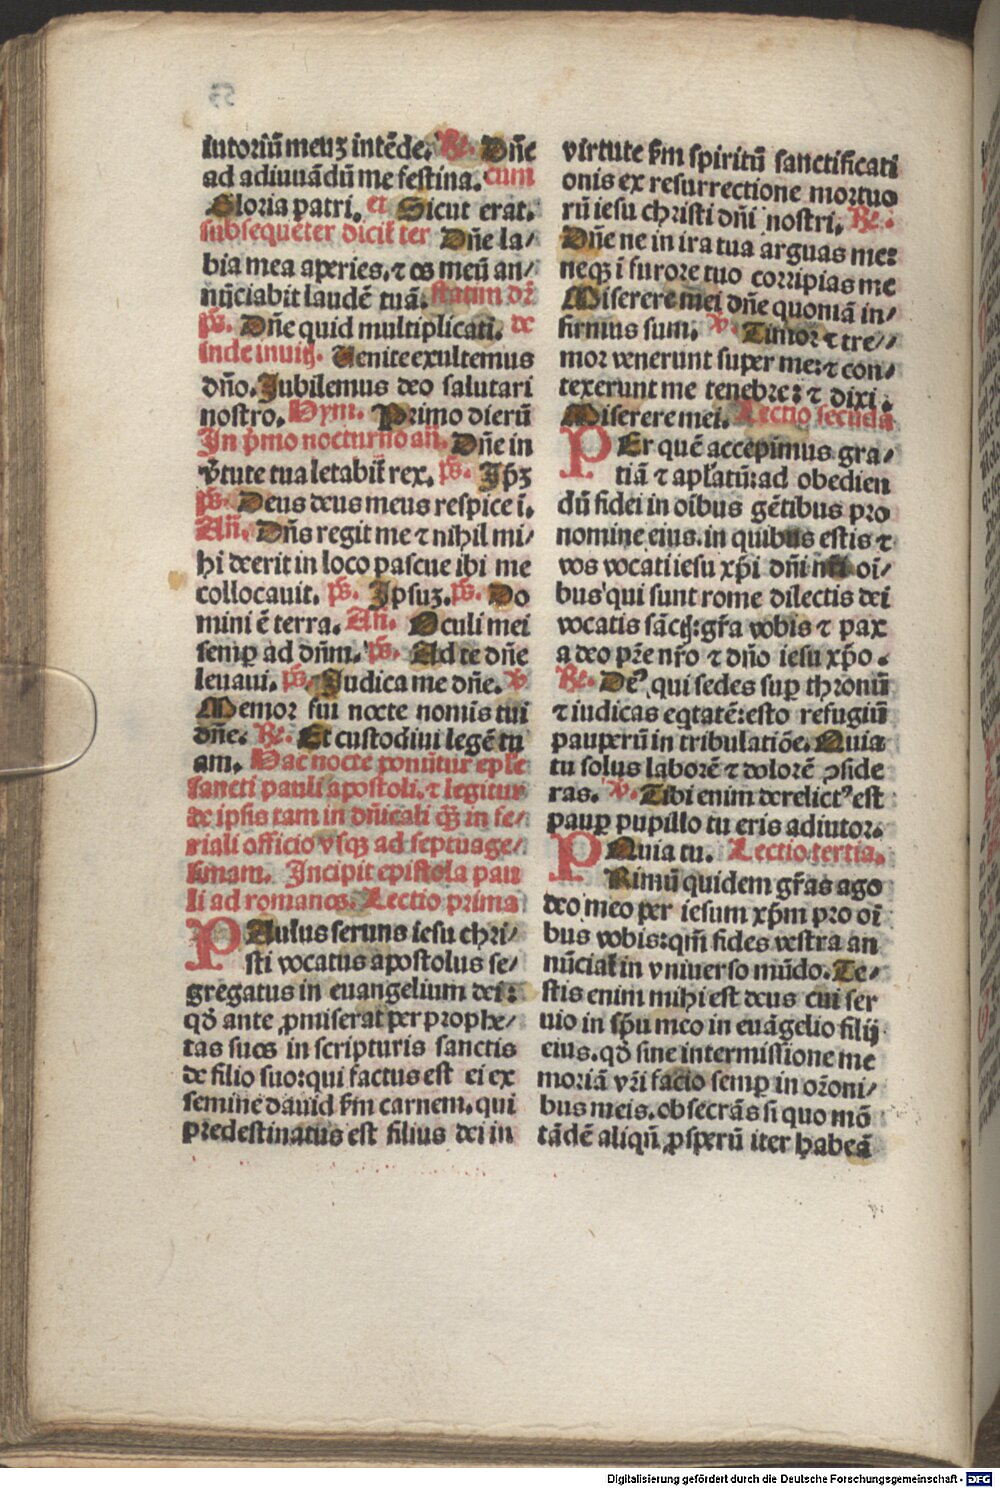 iutoriū meuʒ intēde. ℞. Dn̄e
ad adiuuādū me festina. cum
Gloria patri. et Sicut erat.
subsequēter dicit᷑ ter Dn̄e la/
bia mea aperies. ⁊ os meū an/
nūciabit laudē tuā. statim dr̄
p̄s. Dn̄e quid multiplicati. de
inde inuit. Uenite exultemus
dn̄o. Jubilemus deo salutari
nostro. Hym. Primo dierū
In p̄mo nocturno an̄. Dn̄e in
v̄tute tua letabit᷑ rex. p̄s. Jp̄ʒ
p̄s. Deus deus meus respice ī.
An̄. Dn̄s regit me ⁊ nihil mi/
hi deerit in loco pascue ibi me
collocauit. p̄s. Jpsuʒ. p̄s. Do
mini ē terra. An̄. Oculi mei
semꝑ ad dn̄m. p̄s. Ad te dn̄e
leuaui. p̄s. Judica me dn̄e. ℣
Memor fui nocte nomīs tui
dn̄e. ℞. Et custodiui legē tu
am. Hac nocte ponūtur epl̄e
sancti pauli apostoli. ⁊ legitur
de ipsis tam in dn̄icali q̄ȝ in fe/
riali officio vsqȝ ad septuage/
simam. Incipit epistola pau
li ad romanos. Lectio prima
PAulus seruus iesu chri/
sti vocatus apostolus se/
gregatus in euangelium dei:
qd̄ ante ꝓmiserat per prophe/
tas suos in scripturis sanctis
de filio suo: qui factus est ei ex
semine dauid s̄m carnem. qui
predestinatus est filius dei in
virtute s̄m spiritū sanctificati
onis ex resurrectione mortuo
rū iesu christi dn̄i nostri. ℞.
Dn̄e ne in ira tua arguas me:
neqȝ ī furore tuo corripias me
Miserere mei dn̄e quoniā in/
firmus sum. ℣. Timor ⁊ tre//
mor venerunt super me: ⁊ con/
texerunt me tenebre: ⁊ dixi.
Miserere mei. Lectio secūda
PEr quē accepimus gra/
tiā ⁊ apl̄atū: ad obedien
dū fidei in oībus gētibus pro
nomine eius. in quibus estis ⁊
vos vocati iesu xp̄i dn̄i nr̄i oī/
bus qui sunt rome dilectis dei
vocatis sāctis: gr̄a vobis ⁊ pax
a deo pr̄e nr̄o ⁊ dn̄o iesu xp̄o.
℞. Deꝰ qui sedes suꝑ thronū
⁊ iudicas eqtatē: esto refugiū
pauperū in tribulatiōe. Quia
tu solus laborē ⁊ dolorē ↄside
ras. ℣. Tibi enim derelictꝰ est
pauꝑ pupillo tu eris adiutor.
Quia tu. Lectio tertia.
PRimū quidem gr̄as ago
deo meo per iesum xp̄m pro oī
bus vobis: qm̄ fides vestra an
nūciat᷑ in vniuerso mūdo. Te/
stis enim mihi est deus cui ser
uio in sp̄u meo in euāgelio filij
eius. qd̄ sine intermissione me
moriā vr̄i facio semꝑ in or̄oni/
bus meis. obsecrās si quo mō
tādē aliqn̄ ꝓsperū iter habeā
Digitalisierung gefördert durch die Deutsche Forschungsgemeinschaft - DFG